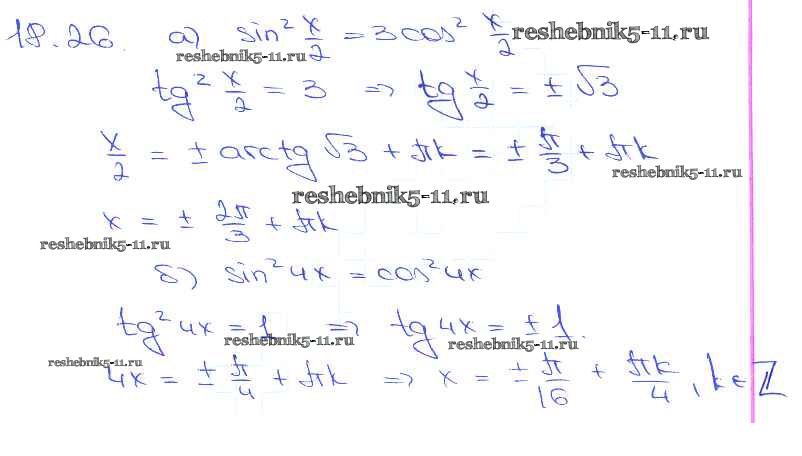 18.26. а) sin² x/2 = 3cos² x/2 reshebnik5-11.ru
reshebnik5-11.ru
tg² x/2 = 3 => tg x/2 = ± √3
x/2 = ± arctg √3 + πk = ± π/3 + πk
reshebnik5-11.ru
reshebnik5-11.ru
x = ± 2π/3 + πk
reshebnik5-11.ru
б) sin² 4x = cos² 4x
tg² 4x = 1 => tg 4x = ± 1.
reshebnik5-11.ru reshebnik5-11.ru
reshebnik5-11.ru
4x = ± π/4 + πk => x = ± π/16 + πk/4, k ∈ Z